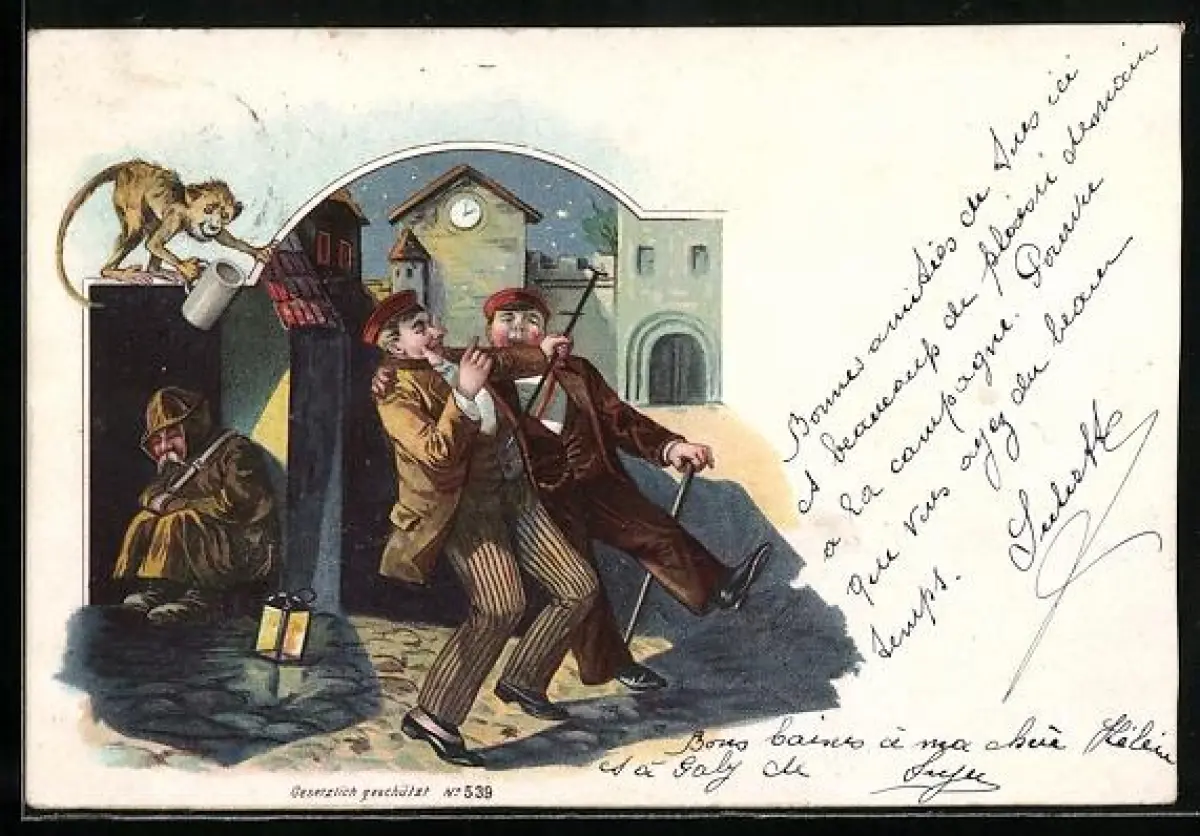 Bonnes amitiés de tous ici
et beaucoup de plaisir demain
à la campagne. Pourvu
que vous ayez du beau
temps.
Bons baisers à ma chère Hélène
et à Gaby de
Gesetzlich geschützt No 539